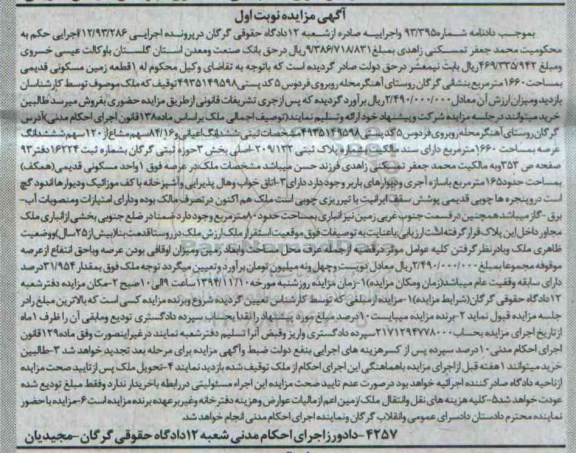 آگهی مزایده نوبت اول
بموجب دادنامه شماره ۹۳/۳۹۵ واجراییه صادره از شعبه ۱۲ دادگاه حقوقی گرگان در پرونده اجرایی ۱۲/۹۳/۲۸۶ اجرایی حکم به
محکومیت محمد جعفر تمسکنی زاهدی بمبلغ ۹/۳۸۶/۷۱۸/۸۳۱ ریال در حق بانک صنعت ومعدن استان گلستان باوکالت عیسی خسروی
ومبلغ ۴۶۹/۳۳۵/۹۴۲ ریال بابت نیمعشر در حق دولت صادر گردیده است که باتوجه به تقاضای وکیل محکوم له ۱ قطعه زمین مسکونی قدیمی
بمساحت ۱۶۶۰ مترمربع بنشانی گرگان روستای آهنگر محله روبروی فردوس ۵ کد پستی ۴۹۳۵۱۴۹۵۹۸ توقیف که ملک موصوف توسط کارشناسان
بازدید ومیزان ارزش آن معادل ۲/۴۹۰/۰۰۰/۰۰۰ ریال برآورد گردیده که پس از جری تشریفات قانونی از طریق مزایده حضوری بفروش میرسد طالبین
خرید میتوانند در جلسه مزایده شرکت و پیشنهاد خود ارائه و تسلیم نمایند (توصیف اجمالی ملک بر اساس ماده ۱۳۸ قانون اجرای احکام مدنی) آدرس
گرگان روستای آهنگر محله روبروی فردوس ۵ کد پستی ۴۹۳۵۱۴۹۵۹۸ مشخصات ثبتی ششدانگ اعیانی و ۸۴/۱۶ سهم مشاع از ۱۲۰ سهم ششدانگ
عرصه بمساحت ۱۶۶۰ مترمربع دارای سند مالکیت بشماره پلاک ثبتی ۲۰۹/۱۳۲-اصلی بخش ۳ حوزه ثبتی گرگان بشماره ثبت ۱۶۲۲۴ دفتر ۹۳
صفحه ص ۳۵۳ و به مالکیت محمد جعفر تمسکنی زاهدی فرزند حسن میباشد مشخصات ملک در عرصه فوق ۱ واحد مسکونی قدیمی (همکف)
بمساحت حدود ۱۶۵ مترمربع باسازه آجری ودیوارهای باربر وجود دارد دارای ۳-اتاق خواب وهال پذیرایی وآشپزخانه با کف موزائیک ودیوارها اندود گچ
است و پنجره ها چوبی قدیمی پوشش سقف ایرانیت با تیرریزی چوبی است ملک هم اکنون در تصرف مالک بوده ودارای امتیازات ومنصوبات آب-
برق-گاز میباشد همچنین در قسمت جنوب غربی زمین نیز انباری بمساحت حدود ۸۰ مترمربع وجود دارد ضمنا در ضلع جنوبی بخشی از انباری ملک
مجاور داخل این پلاک قرار گرفته است ارزیابی باعنایت به توضیحات فوق موقعیت استقرار ملک ارزش ملک در روستا قدمت بنا بیش از ۲۵ سال) ووضعیت
ظاهری ملک وبادر نظر گرفتن کلیه عوامل موثر در قضیه از جمله عرف محل مساحت وابعاد زمین ومیزان اوقافی بودن عرصه وباحق انتفاع از عرصه
موقوفه مجموعا بمبلغ ۲/۴۹۰/۰۰۰/۰۰۰ ریال معادل دویست وچهل ونه میلیون تومان برآورد وتعیین میگردد توجه ملک فوق بمقدار ۳۱/۹۵۴ درصد
دارای سابقه وقفیت عام میباشد (زمان ومکان مزایده) ۱-زمان مزایده روز شنبه مورخه ۱۳۹۴/۱۱/۱۰ ساعت ۹ الی ۱۰ صبح ۲-مکان مزایده دفتر شعبه
۱۲ دادگاه حقوقی گرگان (شرایط مزایده) ۱-مزایده از مبلغی که توسط کارشناس تعیین گردیده شروع وبرنده مزایده کسی است که بالاترین مبلغ رادر
جلسه مزایده قبول نماید ۲-برنده مزایده میبایست ۱۰ درصد مبلغ مورد پیشنهاد را نقدا بحساب سپرده دادگستری تودیع ومابقی آن را ظرف ۱ ماه
از تاریخ اجرای مزایده بحساب ۲۱۷۱۲۹۴۷۷۸۰۰۰ سپرده دادگستری واریز وفیش آنرا تسلیم دفتر شعبه نمایند در غیر اینصورت وفق ماده ۱۲۹ قانون
اجرای احکام مدنی ۱۰ درصد سپرده پس از کسر هزینه های اجرایی بنفع دولت ضبط وآگهی مزایده برای مرحله بعد تجدید خواهد شد ۳-طالبین
خرید میتوانند ۱ هفته قبل از اجرای مزایده باهماهنگی این اجرای احکام از ملک توقیف شده بازدید نمایند ۴-تحویل ملک پس از تایید صحت مزایده
از ناحیه دادگاه صادر کننده اجرائیه خواهد بود در صورت عدم تایید صحت مزایده این اجراء مسئولیتی در رابطه باخریدار ندارد وفقط مبلغ تودیع شده
عودت خواهد شد ۵-کلیه هزینه های نقل وانتقال ملک زمین اعم از مالیات عوارض وهزینه دفترخانه وغیره برعهده برنده مزایده است ۶-مزایده باحضور
نماینده محترم دادستان دادسرای عمومی وانقلاب گرگان ونماینده اجرای احکام مدنی انجام خواهد شد.
۴۲۵۷-دادورز اجرای احکام مدنی شعبه ۱۲ دادگاه حقوقی گرگان-مجیدیان